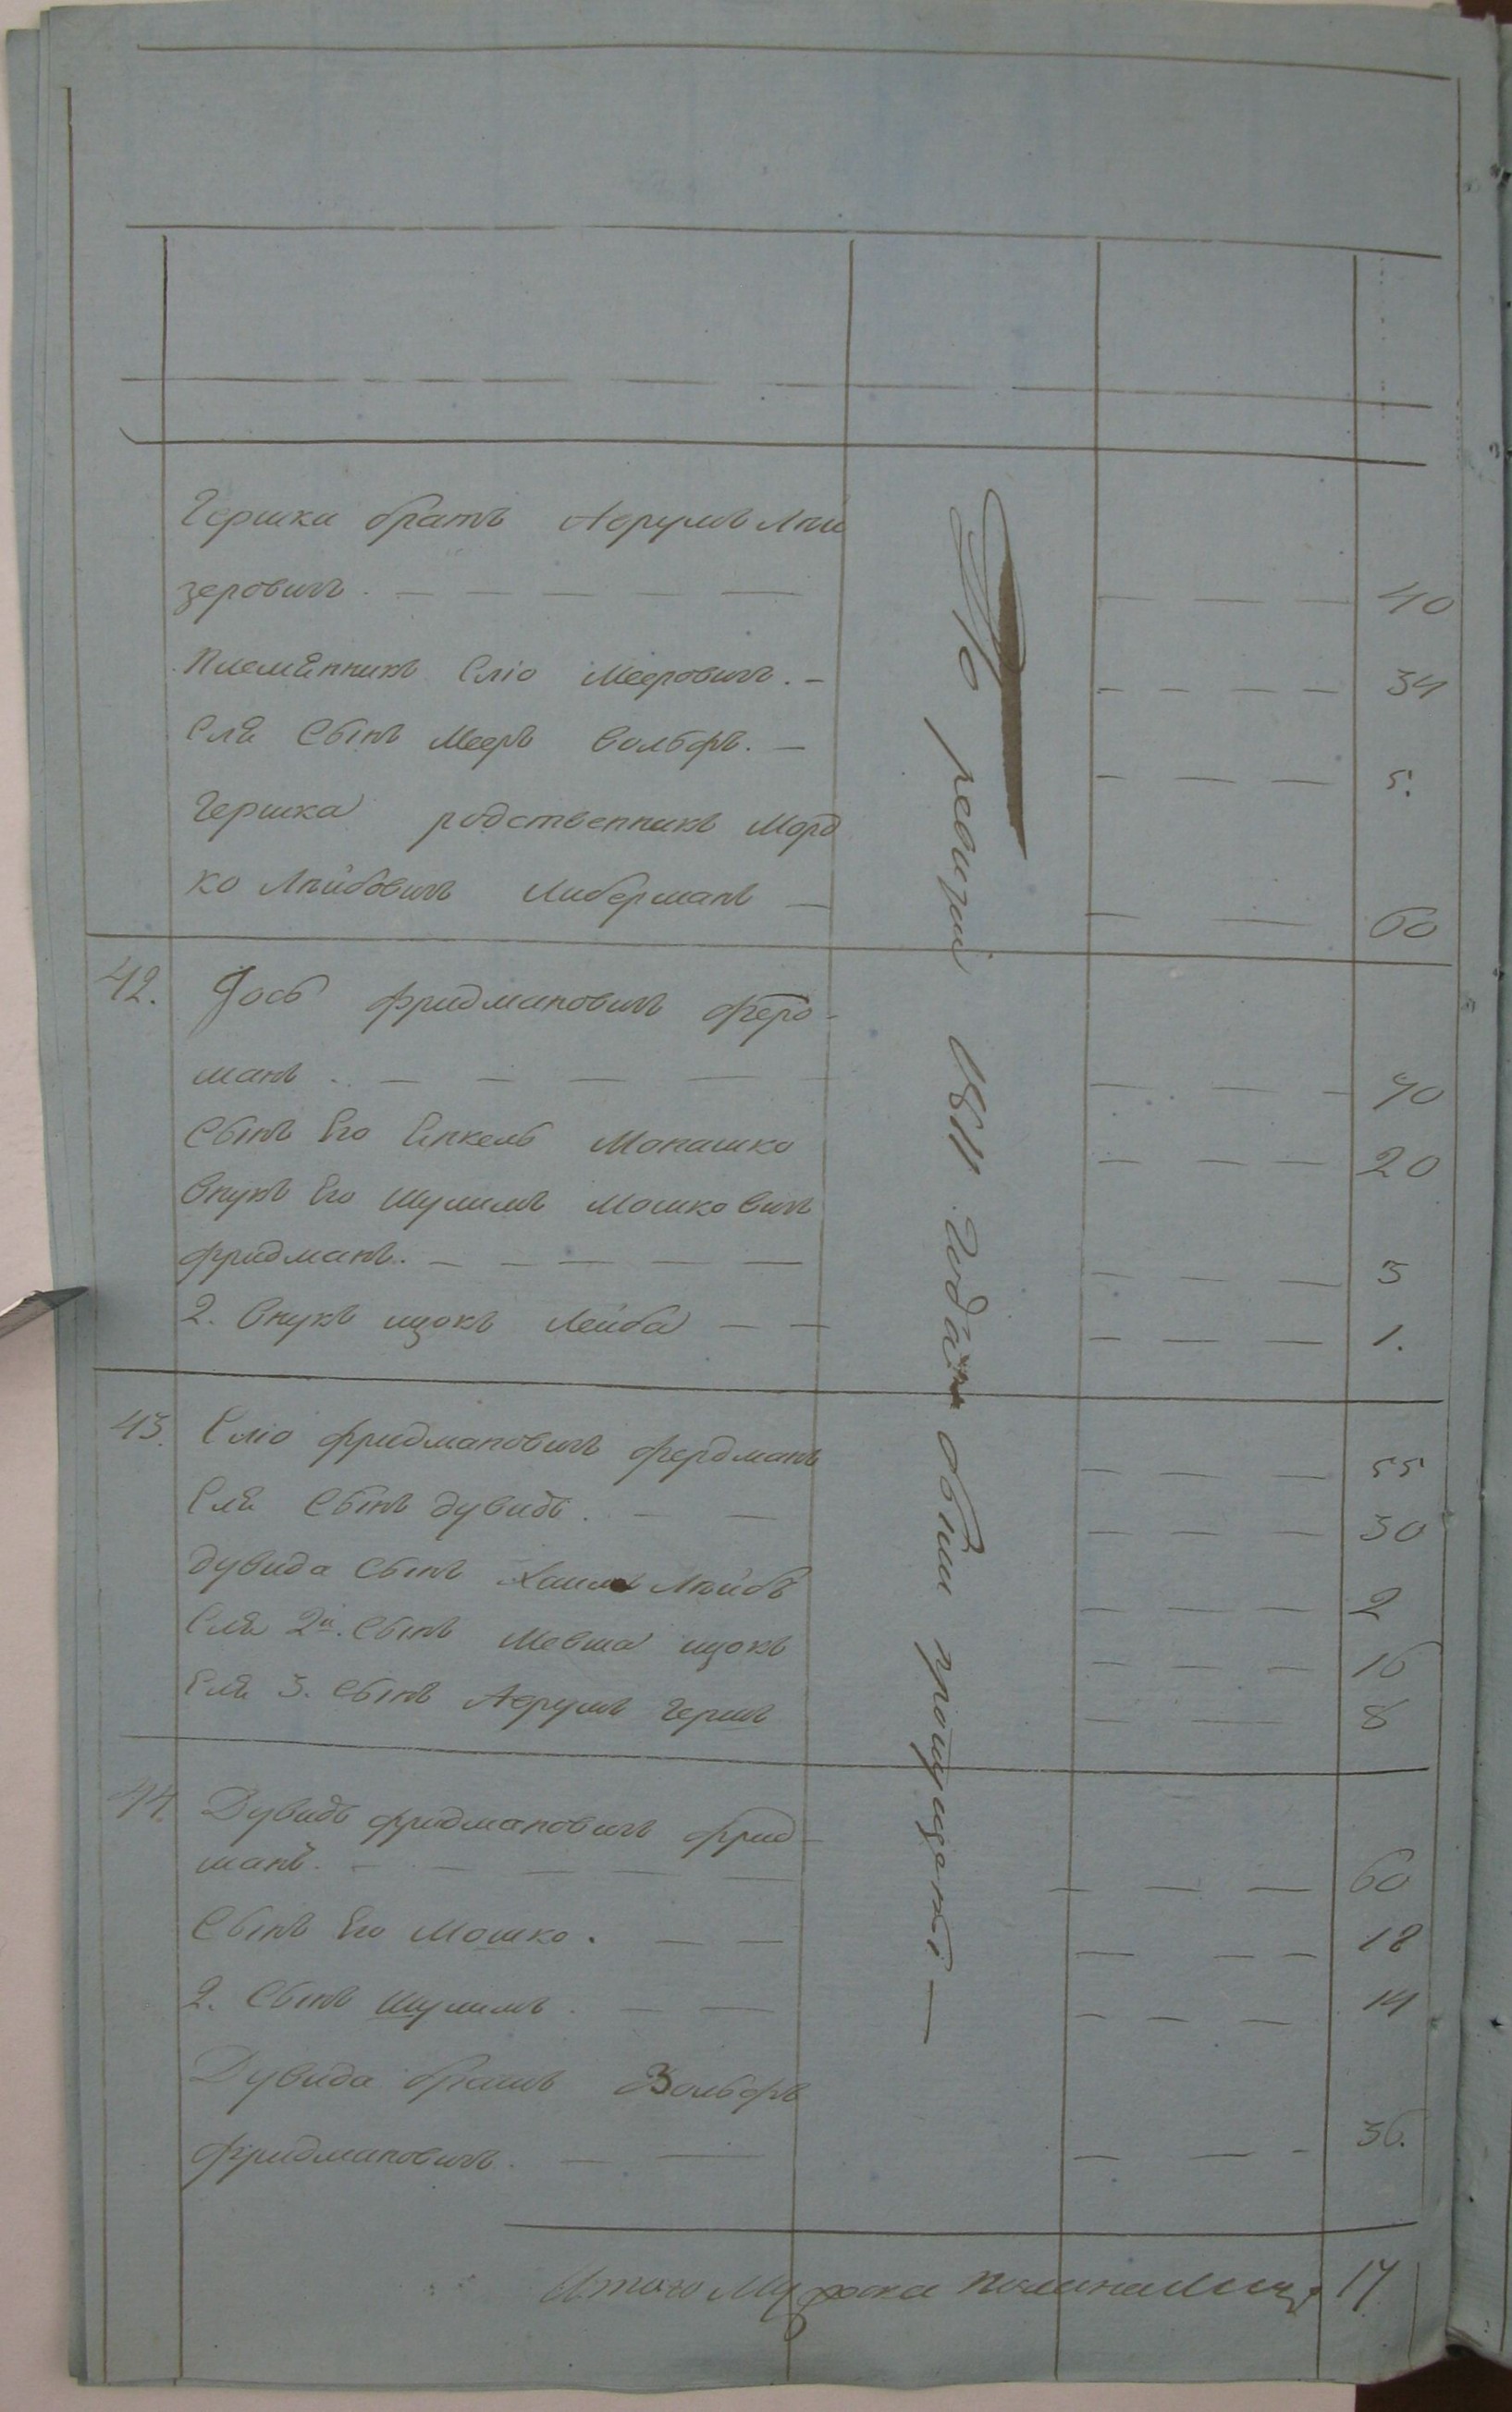 Гершки братъ Аврумъ Лей
зеровичъ. — — — — — — — — 40
Племѣнникъ Еліо Мееровичъ. — — — — — 34
Елѣ Сынъ Мееръ Вольфъ. — — — — 5.
Гершка родственникъ Морд
ко Лейбовичъ Либерманъ — — — 60
42. Іось Фридмановичъ Фердъ-
манъ . — — — — — — — 70
Сынъ Его Енкель Монашко — — — — 20
Внукъ Его Шулимъ Мошковичъ
Фридманъ. — — — — — — — — 3
2. Внукъ ицокъ Лейба — — — — — 1.
43. Еліо Фридмановичъ Фердманъ — — — 55
Елѣ Сынъ дувидъ. — — — — — 30
дувида Сынъ Хаимъ Лейбъ — — — 2
Елѣ 2й. Сынъ Мевша ицокъ — — — 16
Елѣ 3. Сынъ Аврумъ Гершъ — — 8
44. Дувидъ Фридмановичъ Фрид-
манъ. — — — — — — — — 60
Сынъ Его Мошко. — — — — — 18
2. Сынъ Шулимъ. — — — — — 14
Дувида братъ Вольфъ
Фридмановичъ. — — — — - 36.
По ревизіи 1811 года были пропущены —
Итого Мужеска пола на лицо 17